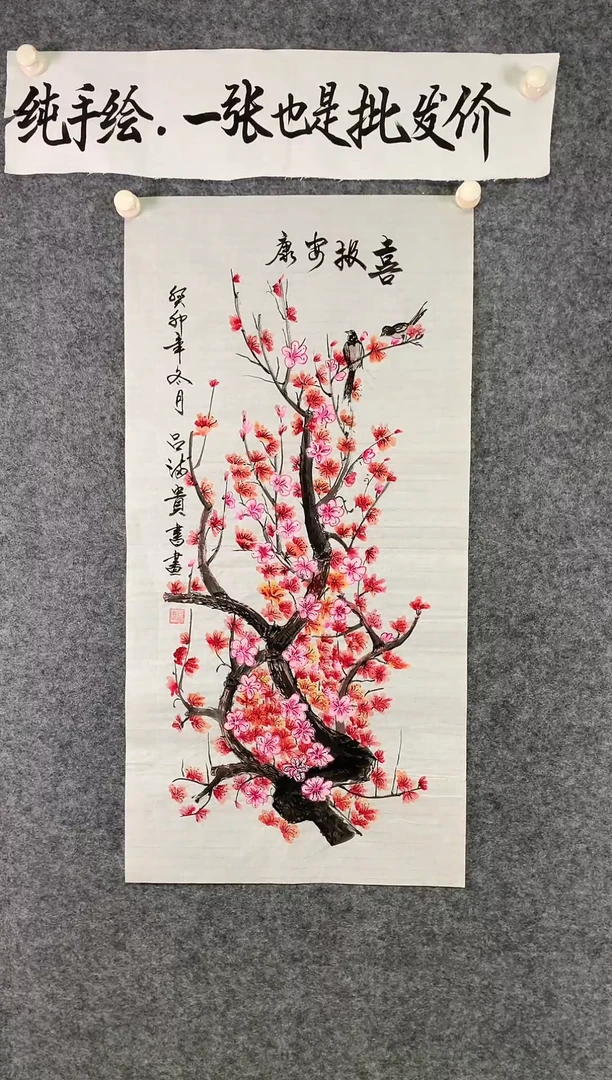 纯手绘.一张也是批发价
喜报安康
癸卯年冬月 吕海贵書畫